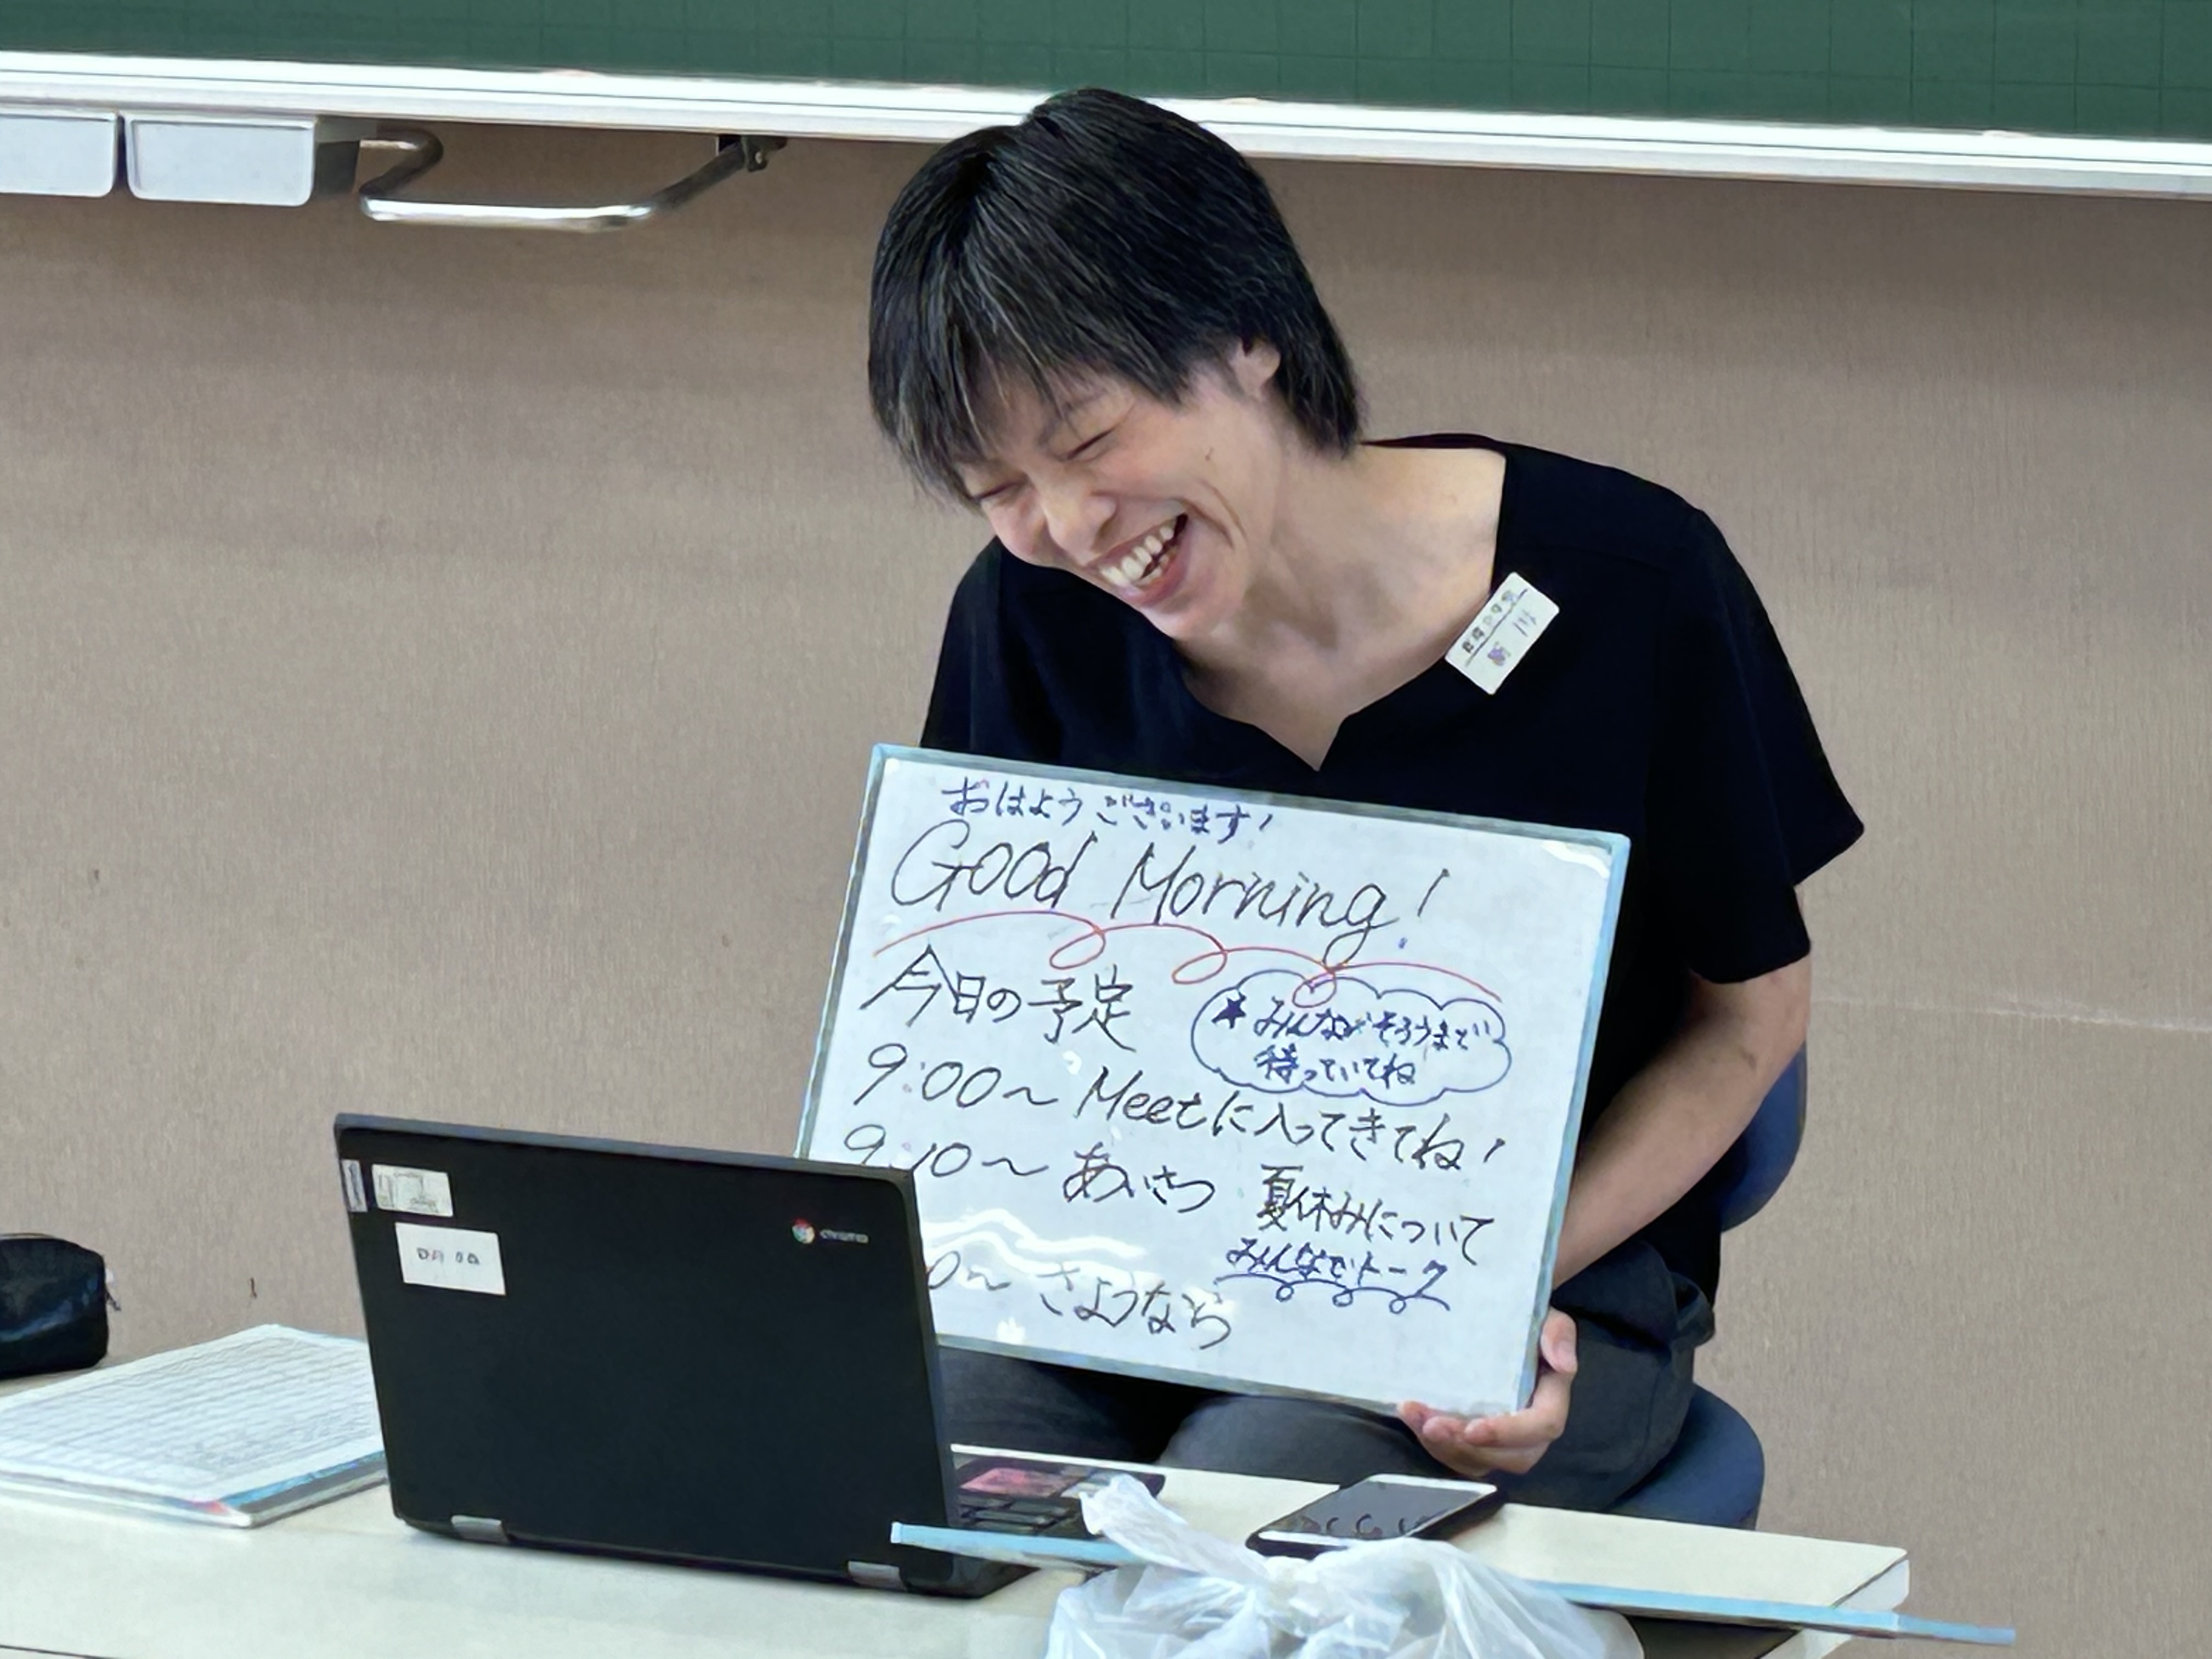 おはようございます！
Good Morning!
今日の予定
★みんながそろうまで
待っていてね
9:00～ Meetに入ってきてね！
9:10～ あいさつ 夏休みについて
みんなでトーク
0～ さようなら
chrome